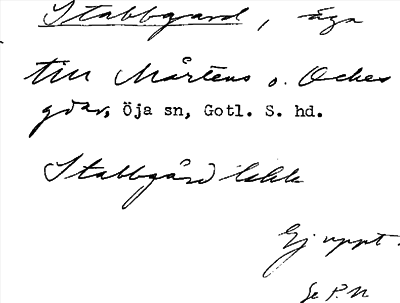 Stabbgard, äga
till Mårtens o. Ockes
gdar, Öja sn, Gotl. S. hd.
Stabbgård
Ej uppt.
Se P.N